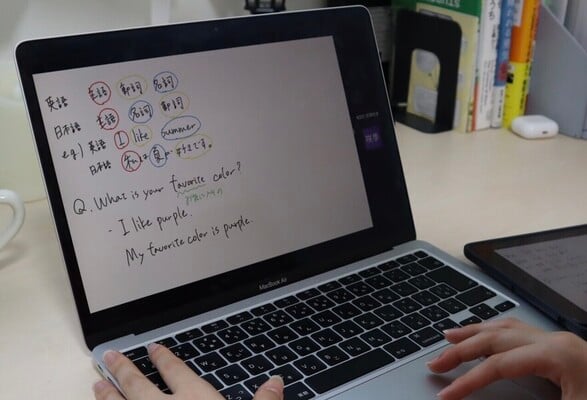 英語 主語 動詞 名詞
日本語 主語 名詞 動詞
e.g) 英語 I like summer
日本語 私は 夏が 好きです。
Q. What is your favorite color?
- I like purple.
My favorite color is purple.
MacBook Air